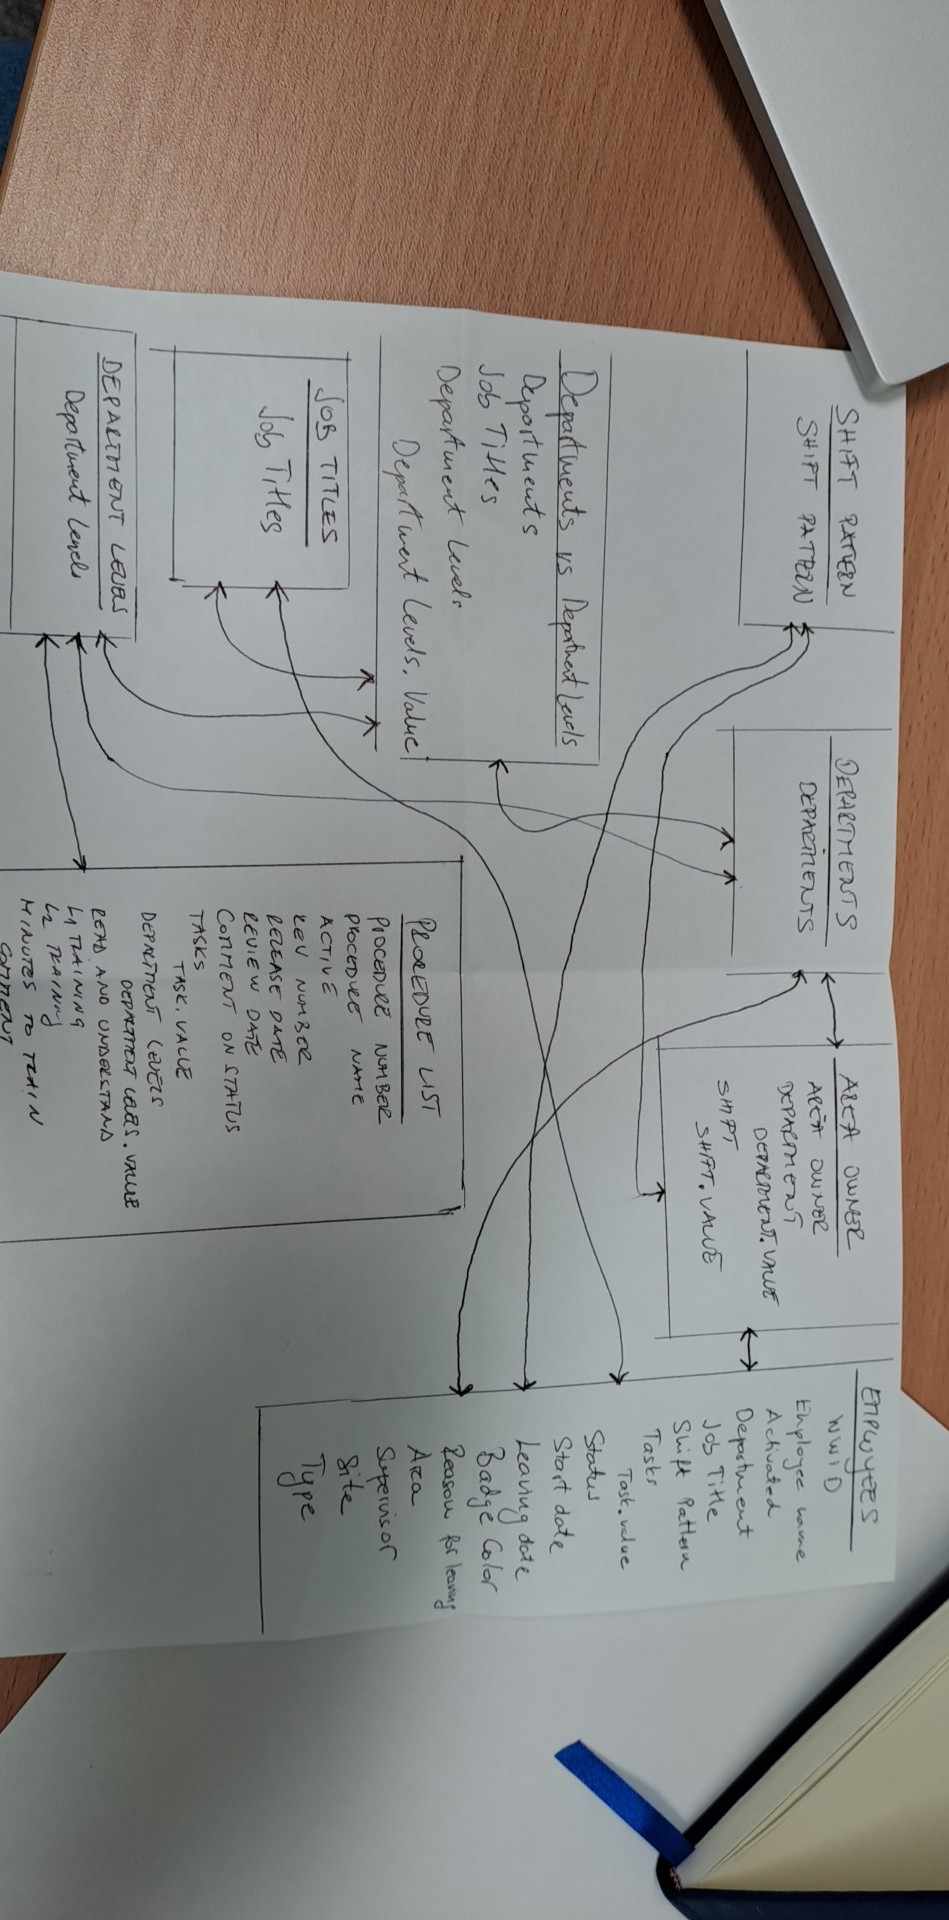 SHIFT PATTERN
SHIFT PATTERN
DEPARTMENTS
DEPARTMENTS
AREA OWNER
AREA OWNER
DEPARTMENT
DEPARTMENT.VALUE
SHIFT
SHIFT.VALUE
EMPLOYEES
WWID
Employee name
Activated
Department
Job Title
Shift Pattern
Tasks
Task.value
Status
Start date
Leaving date
Badge Color
Reason for leaving
Area
Supervisor
Site
Type
Departments vs Department Levels
Departments
Job Titles
Department Levels
Department Levels. Value
JOB TITLES
Job Titles
DEPARTMENT LEVELS
Department Levels
PROCEDURE LIST
PROCEDURE NUMBER
PROCEDURE NAME
ACTIVE
REV NUMBER
RELEASE DATE
REVIEW DATE
COMMENT ON STATUS
TASKS
TASK.VALUE
DEPARTMENT LEVELS
DEPARTMENT LEVELS.VALUE
READ AND UNDERSTAND
L1 TRAINING
L2 TRAINING
MINUTES TO TRAIN
COMMENT